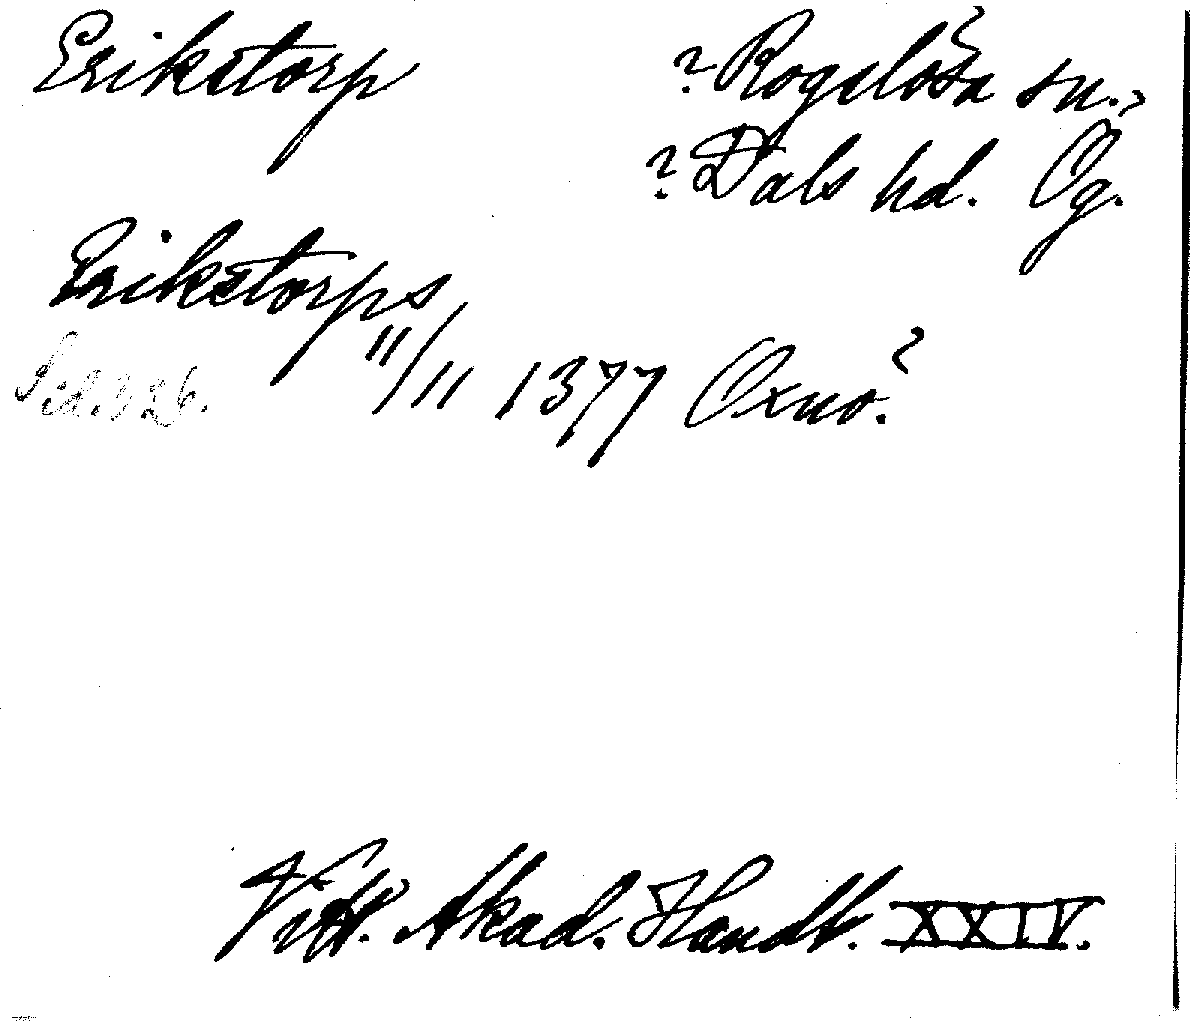 Erikstorp ? Rogslösa sn.?
? Dals hd. Ög.
Erikstorps
11/11 1377 Oxnö?
Sid. 326.
Vitt. Akad. Handl. XXIV.